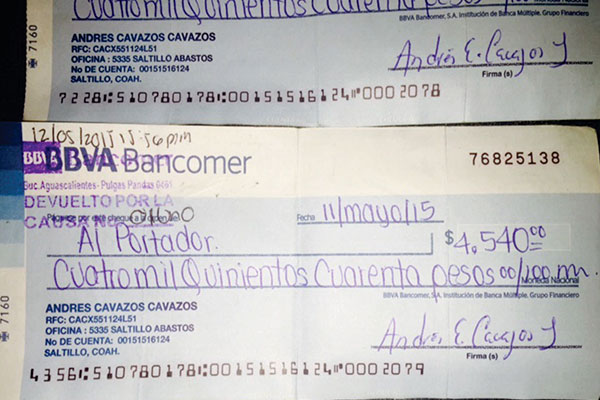 Cuatromil Quinientos Cuarenta pesos
BBVA Bancomer, S.A. Institución de Banca Múltiple, Grupo Financiero
7160
ANDRES CAVAZOS CAVAZOS
RFC: CACX551124L51
OFICINA : 5335 SALTILLO ABASTOS
No DE CUENTA: 00151516124
SALTILLO, COAH.
Andrés E. Cavazos
Firma (s)
7228:510780178:00151516124 0002078
12/05/2015 15:56pm
BBVA Bancomer
76825138
Suc. Aguascalientes - Pulgas Pandas
DEVUELTO POR LA
CAUSA No.
Páguese por este cheque a la orden de
Fecha 11/mayo/15
Al Portador.
$4,540.00
Cuatromil Quinientos Cuarenta pesos 00/100 mn.
Moneda Nacional
BBVA Bancomer, S.A. Institución de Banca Múltiple, Grupo Financiero
7160
ANDRES CAVAZOS CAVAZOS
RFC: CACX551124L51
OFICINA : 5335 SALTILLO ABASTOS
No DE CUENTA: 00151516124
SALTILLO, COAH.
Andrés E. Cavazos
Firma (s)
4356:510780178:00151516124 0002079